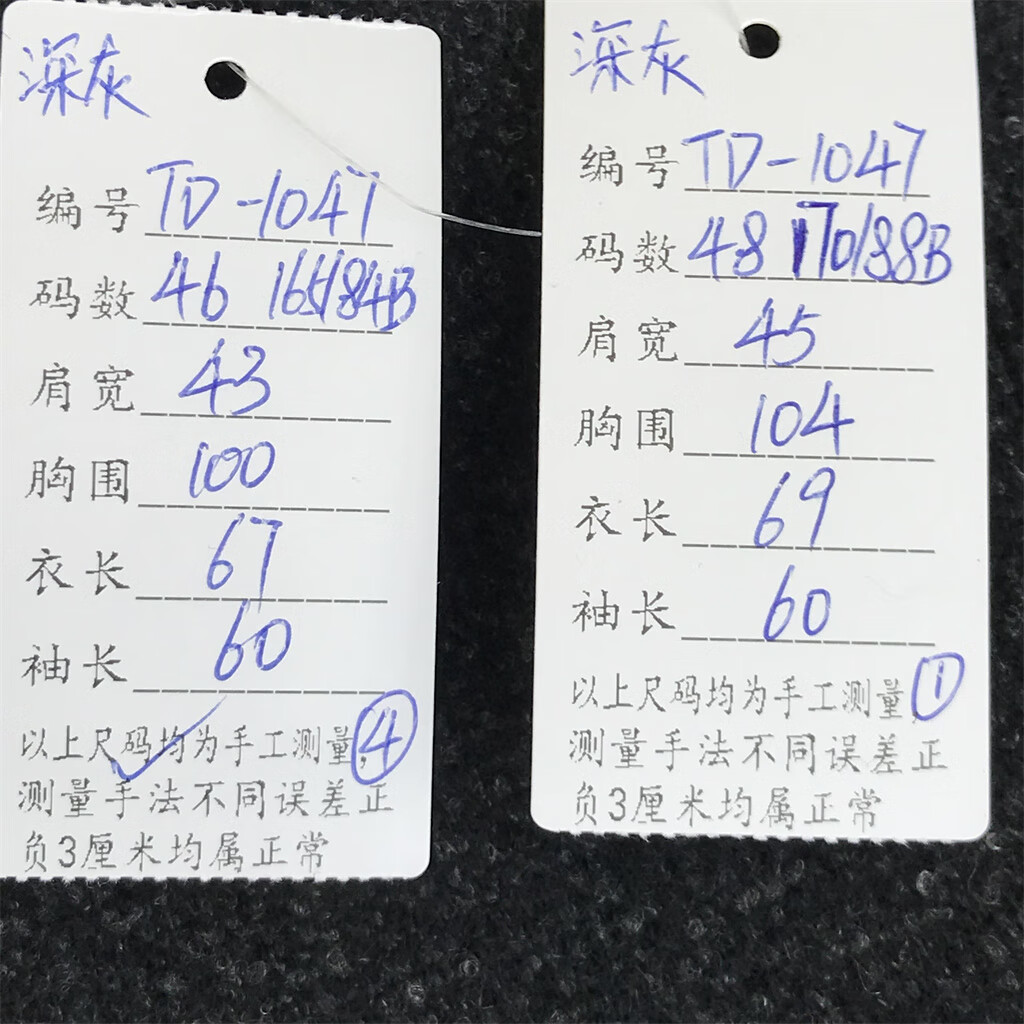 深灰
编号TD-1047
码数46 165/84B
肩宽43
胸围100
衣长67
袖长60
以上尺码均为手工测量,④
测量手法不同误差正
负3厘米均属正常
深灰
编号TD-1047
码数48 170/88B
肩宽45
胸围104
衣长69
袖长60
以上尺码均为手工测量,①
测量手法不同误差正
负3厘米均属正常